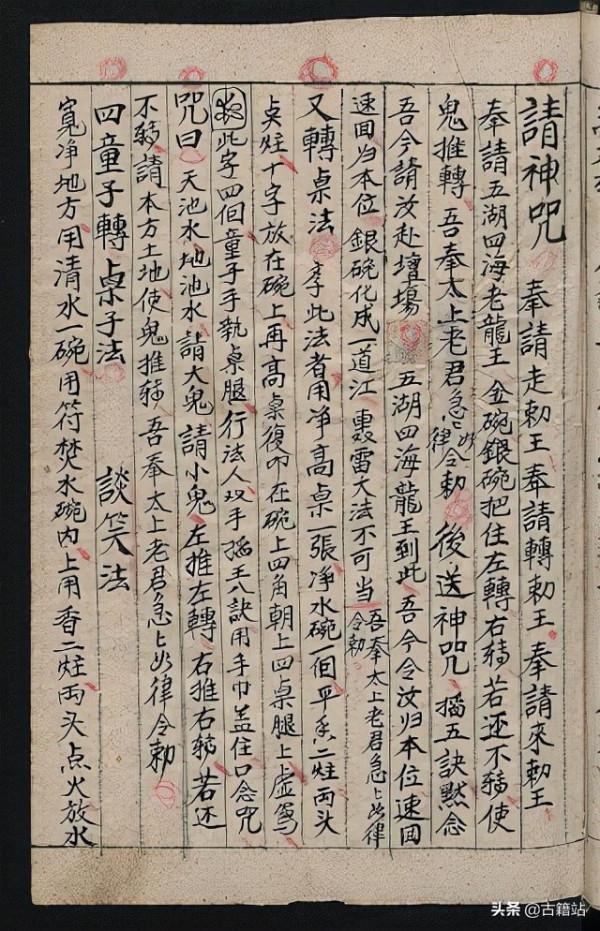 請神咒 奉請走勅王奉請轉勅王奉請來勅王
奉請五湖四海老龍王金碗銀碗把住左轉右轉若还不轉使
鬼推轉 吾奉太上老君急急如律令勅 後送神咒 搯五訣黙念
吾今請汝赴壇場 五湖四海龍王到此 吾今令汝归本位速回
速回归本位 銀碗化成一道江 轟雷大法不可当 吾奉太上老君急上如律令勅
又轉桌法 李此法者用净高桌一張净水碗一個平香二炷两头
点炷十字放在碗上再高桌復叩在碗上四角朝上四桌腿上虛写
此字四個童子手執桌腿行法人双手搯王八訣用手巾盖住口念咒
咒曰 天池水地池水請大鬼請小鬼左推左轉右推右轉若还
不轉請本方土地使鬼推轉吾奉太上老君急上如律令勅
四童子轉桌子法 談笑法
寬净地方用清水一碗用符焚水碗内上用香二炷两头点火放水
头条@古籍站